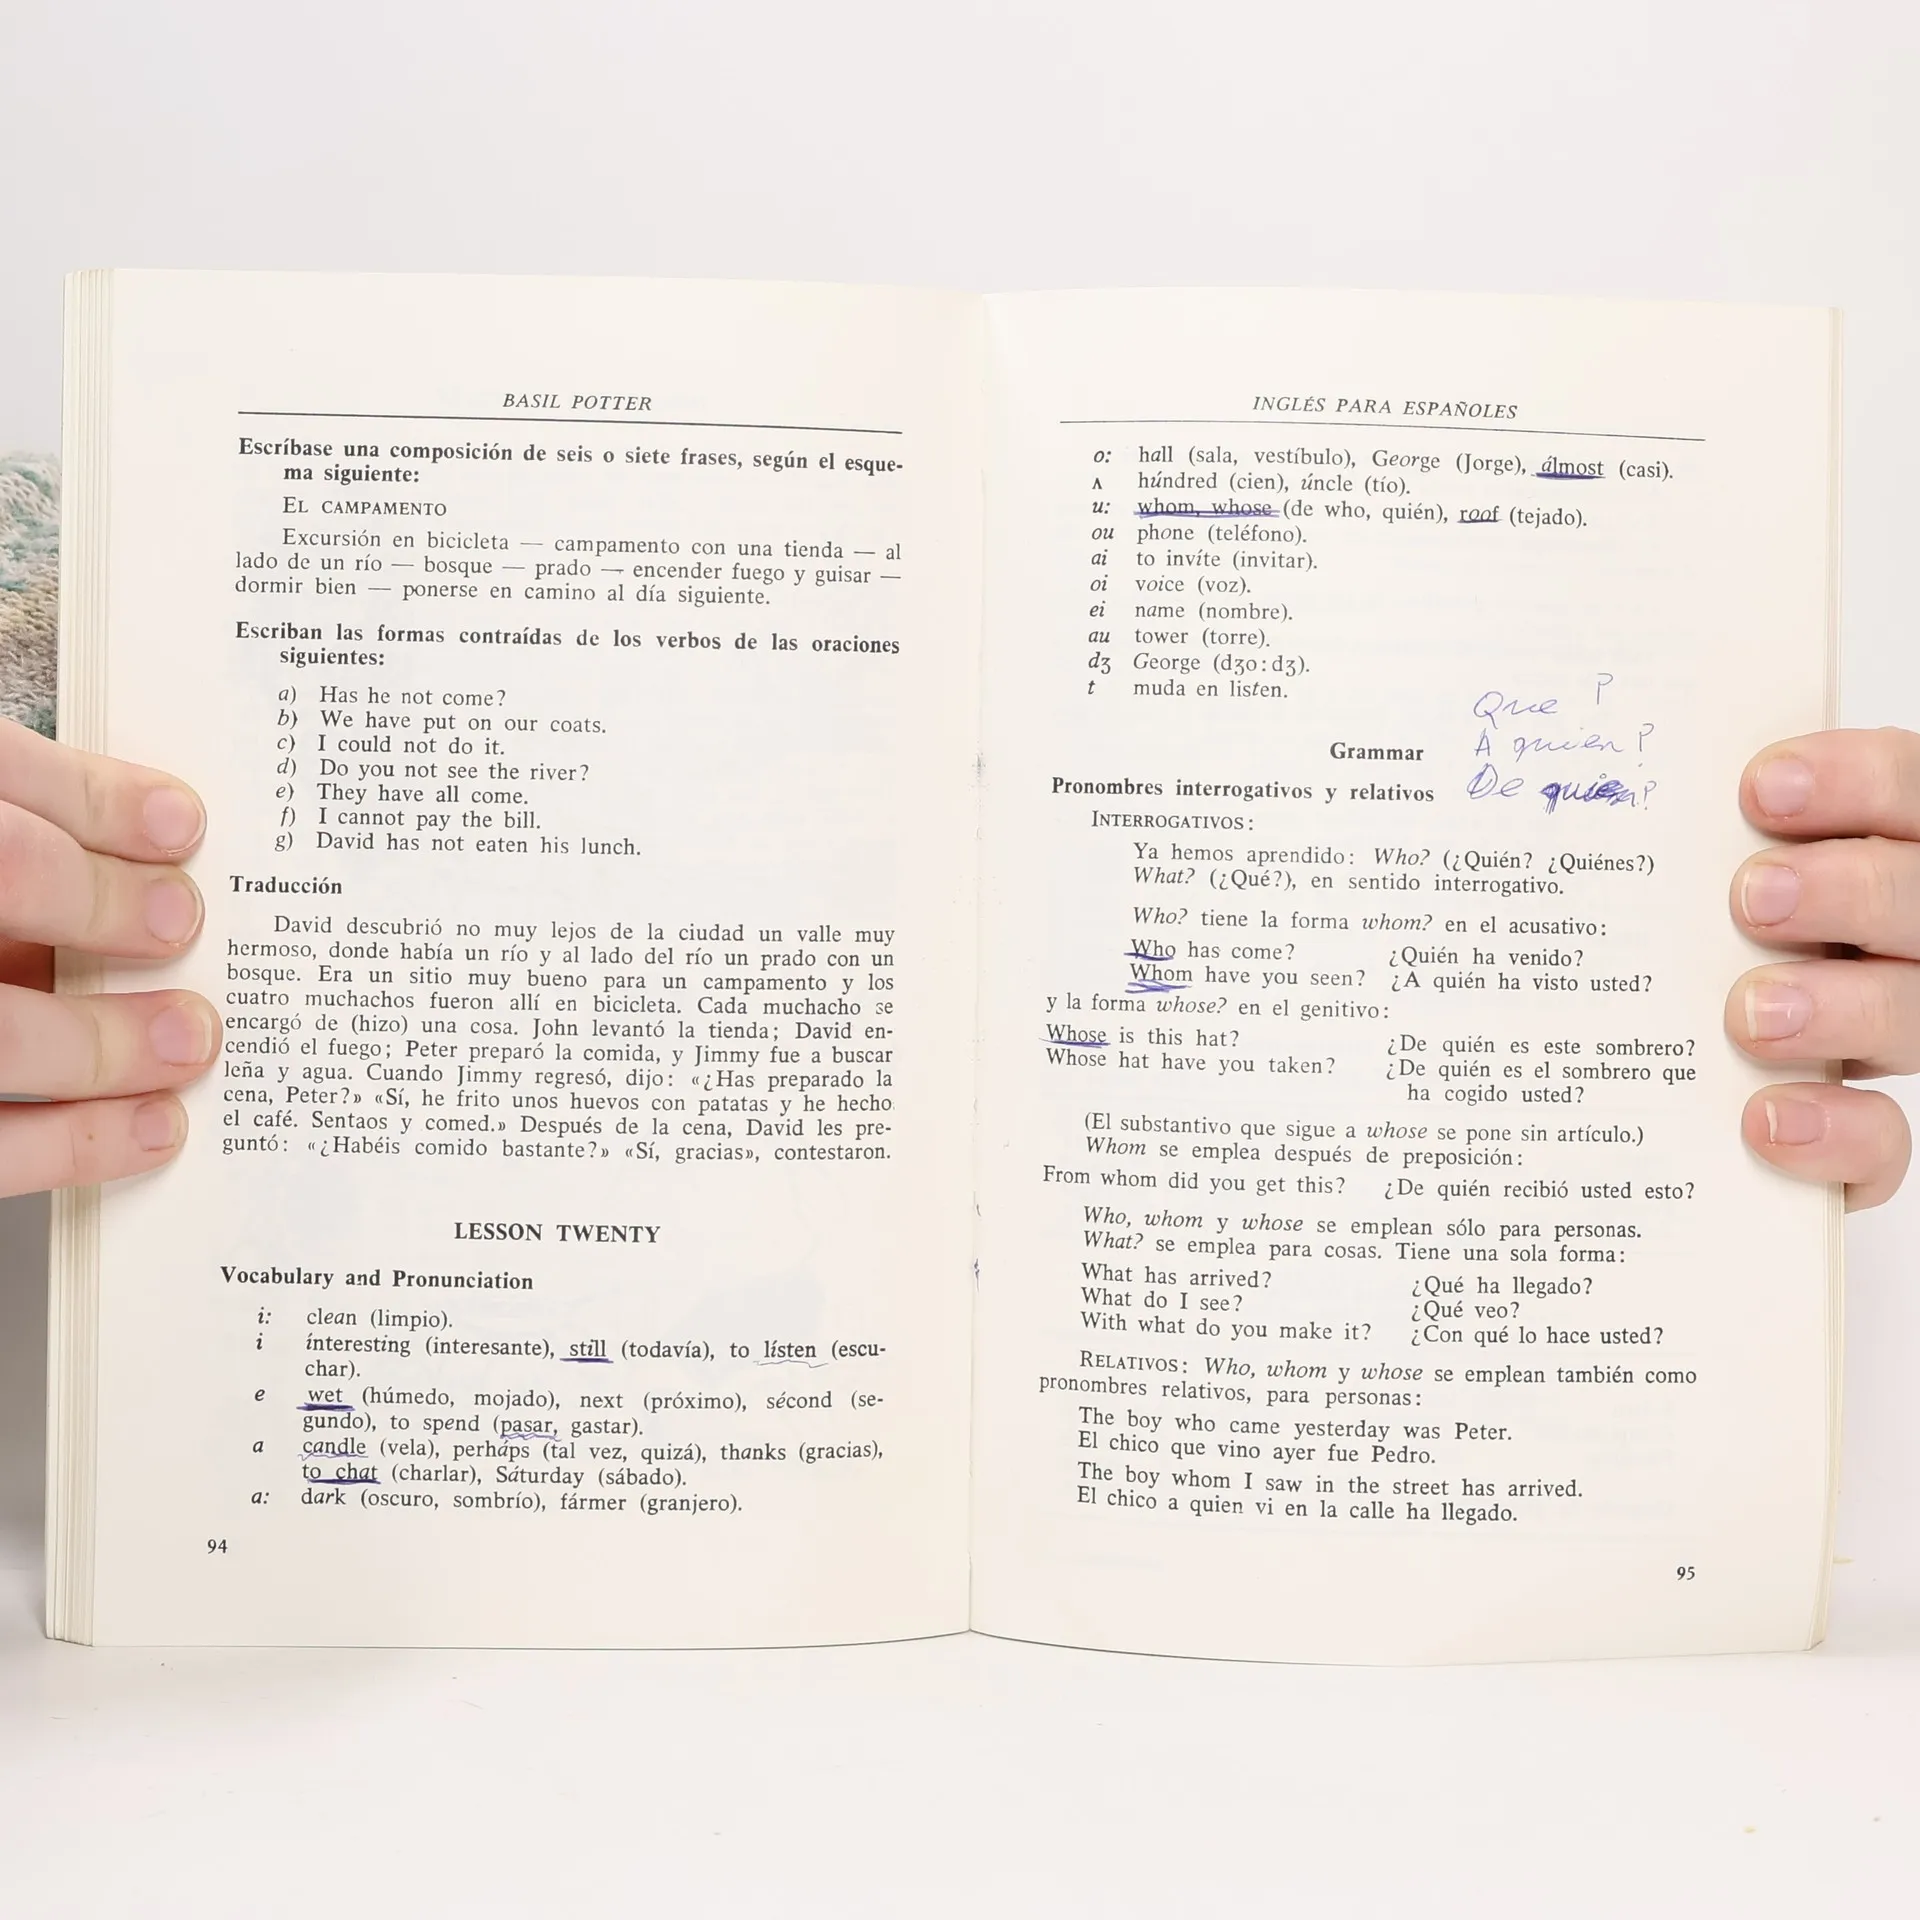 BASIL POTTER
Escríbase una composición de seis o siete frases, según el esque-
ma siguiente:
EL CAMPAMENTO
Excursión en bicicleta — campamento con una tienda — al
lado de un río — bosque — prado — encender fuego y guisar —
dormir bien — ponerse en camino al día siguiente.
Escriban las formas contraídas de los verbos de las oraciones
siguientes:
a) Has he not come?
b) We have put on our coats.
c) I could not do it.
d) Do you not see the river?
e) They have all come.
f) I cannot pay the bill.
g) David has not eaten his lunch.
Traducción
David descubrió no muy lejos de la ciudad un valle muy
hermoso, donde había un río y al lado del río un prado con un
bosque. Era un sitio muy bueno para un campamento y los
cuatro muchachos fueron allí en bicicleta. Cada muchacho se
encargó de (hizo) una cosa. John levantó la tienda; David en-
cendió el fuego; Peter preparó la comida, y Jimmy fue a buscar
leña y agua. Cuando Jimmy regresó, dijo: «¿Has preparado la
cena, Peter?» «Sí, he frito unos huevos con patatas y he hecho
el café. Sentaos y comed.» Después de la cena, David les pre-
guntó: «¿Habéis comido bastante?» «Sí, gracias», contestaron.
LESSON TWENTY
Vocabulary and Pronunciation
i: clean (limpio).
i ínteresting (interesante), still (todavía), to lísten (escu-
char).
e wet (húmedo, mojado), next (próximo), sécond (se-
gundo), to spend (pasar, gastar).
a candle (vela), perháps (tal vez, quizá), thanks (gracias),
to chat (charlar), Sáturday (sábado).
a: dark (oscuro, sombrío), fármer (granjero).
94
INGLÉS PARA ESPAÑOLES
o: hall (sala, vestíbulo), George (Jorge), álmost (casi).
ʌ húndred (cien), úncle (tío).
u: whom, whose (de who, quién), roof (tejado).
ou phone (teléfono).
ai to invíte (invitar).
oi voice (voz).
ei name (nombre).
au tower (torre).
dʒ George (dʒo:dʒ).
t muda en listen.
Que ?
A quien ?
De quien?
Grammar
Pronombres interrogativos y relativos
INTERROGATIVOS:
Ya hemos aprendido: Who? (¿Quién? ¿Quiénes?)
What? (¿Qué?), en sentido interrogativo.
Who? tiene la forma whom? en el acusativo:
Who has come? ¿Quién ha venido?
Whom have you seen? ¿A quién ha visto usted?
y la forma whose? en el genitivo:
Whose is this hat? ¿De quién es este sombrero?
Whose hat have you taken? ¿De quién es el sombrero que
ha cogido usted?
(El substantivo que sigue a whose se pone sin artículo.)
Whom se emplea después de preposición:
From whom did you get this? ¿De quién recibió usted esto?
Who, whom y whose se emplean sólo para personas.
What? se emplea para cosas. Tiene una sola forma:
What has arrived? ¿Qué ha llegado?
What do I see? ¿Qué veo?
With what do you make it? ¿Con qué lo hace usted?
RELATIVOS: Who, whom y whose se emplean también como
pronombres relativos, para personas:
The boy who came yesterday was Peter.
El chico que vino ayer fue Pedro.
The boy whom I saw in the street has arrived.
El chico a quien vi en la calle ha llegado.
95